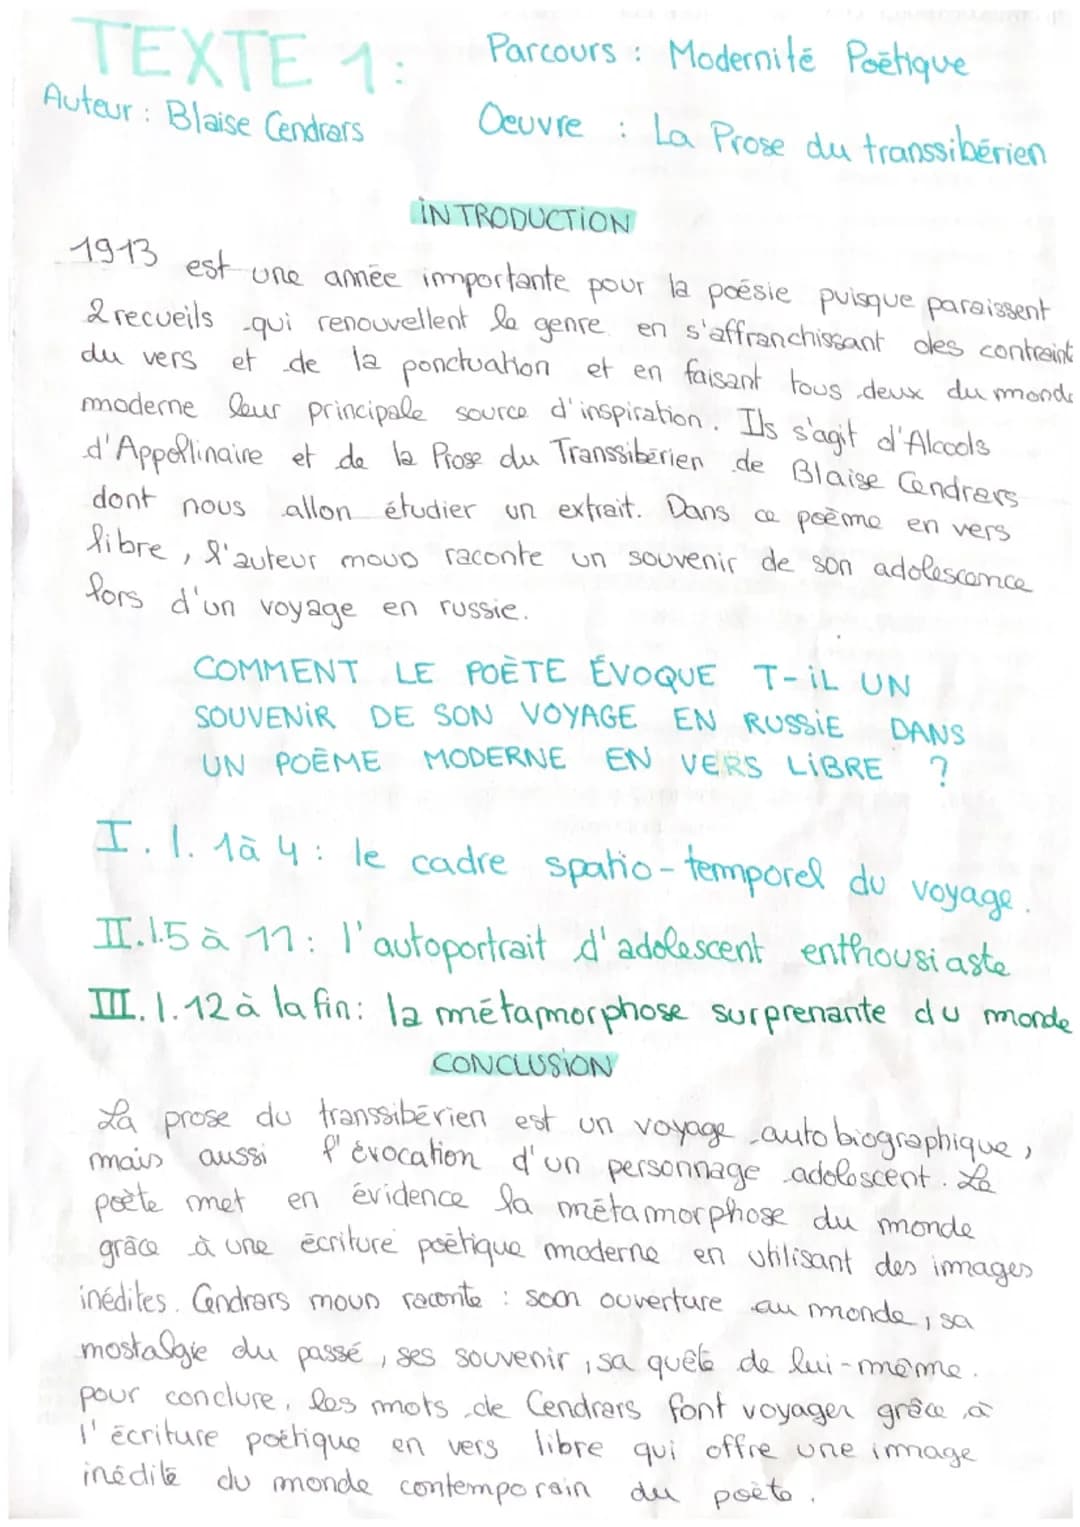 TEXTE 1:
Parcours : Modernité Poétique
Auteur : Blaise Cendrars
Oeuvre : La Prose du transsibérien
INTRODUCTION
1913 est une année importante pour la poésie puisque paraissent
2 recueils qui renouvellent le genre en s'affranchissant des contraint
du vers et de la ponctuation et en faisant tous deux du monde
moderne leur principale source d'inspiration. Ils s'agit d'Alcools
d'Appollinaire et de la Prose du Transsibérien de Blaise Cendrars
dont nous allon étudier un extrait. Dans ce poème en vers
libre, l'auteur nous raconte un souvenir de son adolescence
lors d'un voyage en russie.
COMMENT LE POÈTE ÉVOQUE T-IL UN
SOUVENIR DE SON VOYAGE EN RUSSIE DANS
UN POÈME MODERNE EN VERS LIBRE ?
I. l. 1à 4 : le cadre spatio-temporel du voyage.
II. l.5 à 11 : l'autoportrait d'adolescent enthousiaste
III. l. 12 à la fin : la métamorphose surprenante du monde
CONCLUSION
La prose du transsibérien est un voyage autobiographique,
mais aussi l'évocation d'un personnage adolescent. Le
poète met en évidence la métamorphose du monde
grâce à une écriture poétique moderne en utilisant des images
inédites. Cendrars nous raconte : son ouverture au monde, sa
nostalgie du passé, ses souvenir, sa quête de lui-même.
pour conclure, les mots de Cendrars font voyager grâce à
l'écriture poétique en vers libre qui offre une image
inédite du monde contemporain du poète.